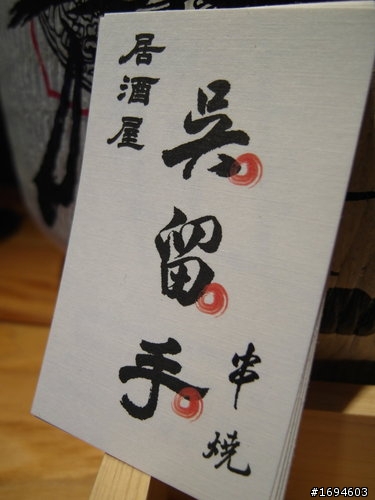 居酒屋
呉留手
串焼
#1694603